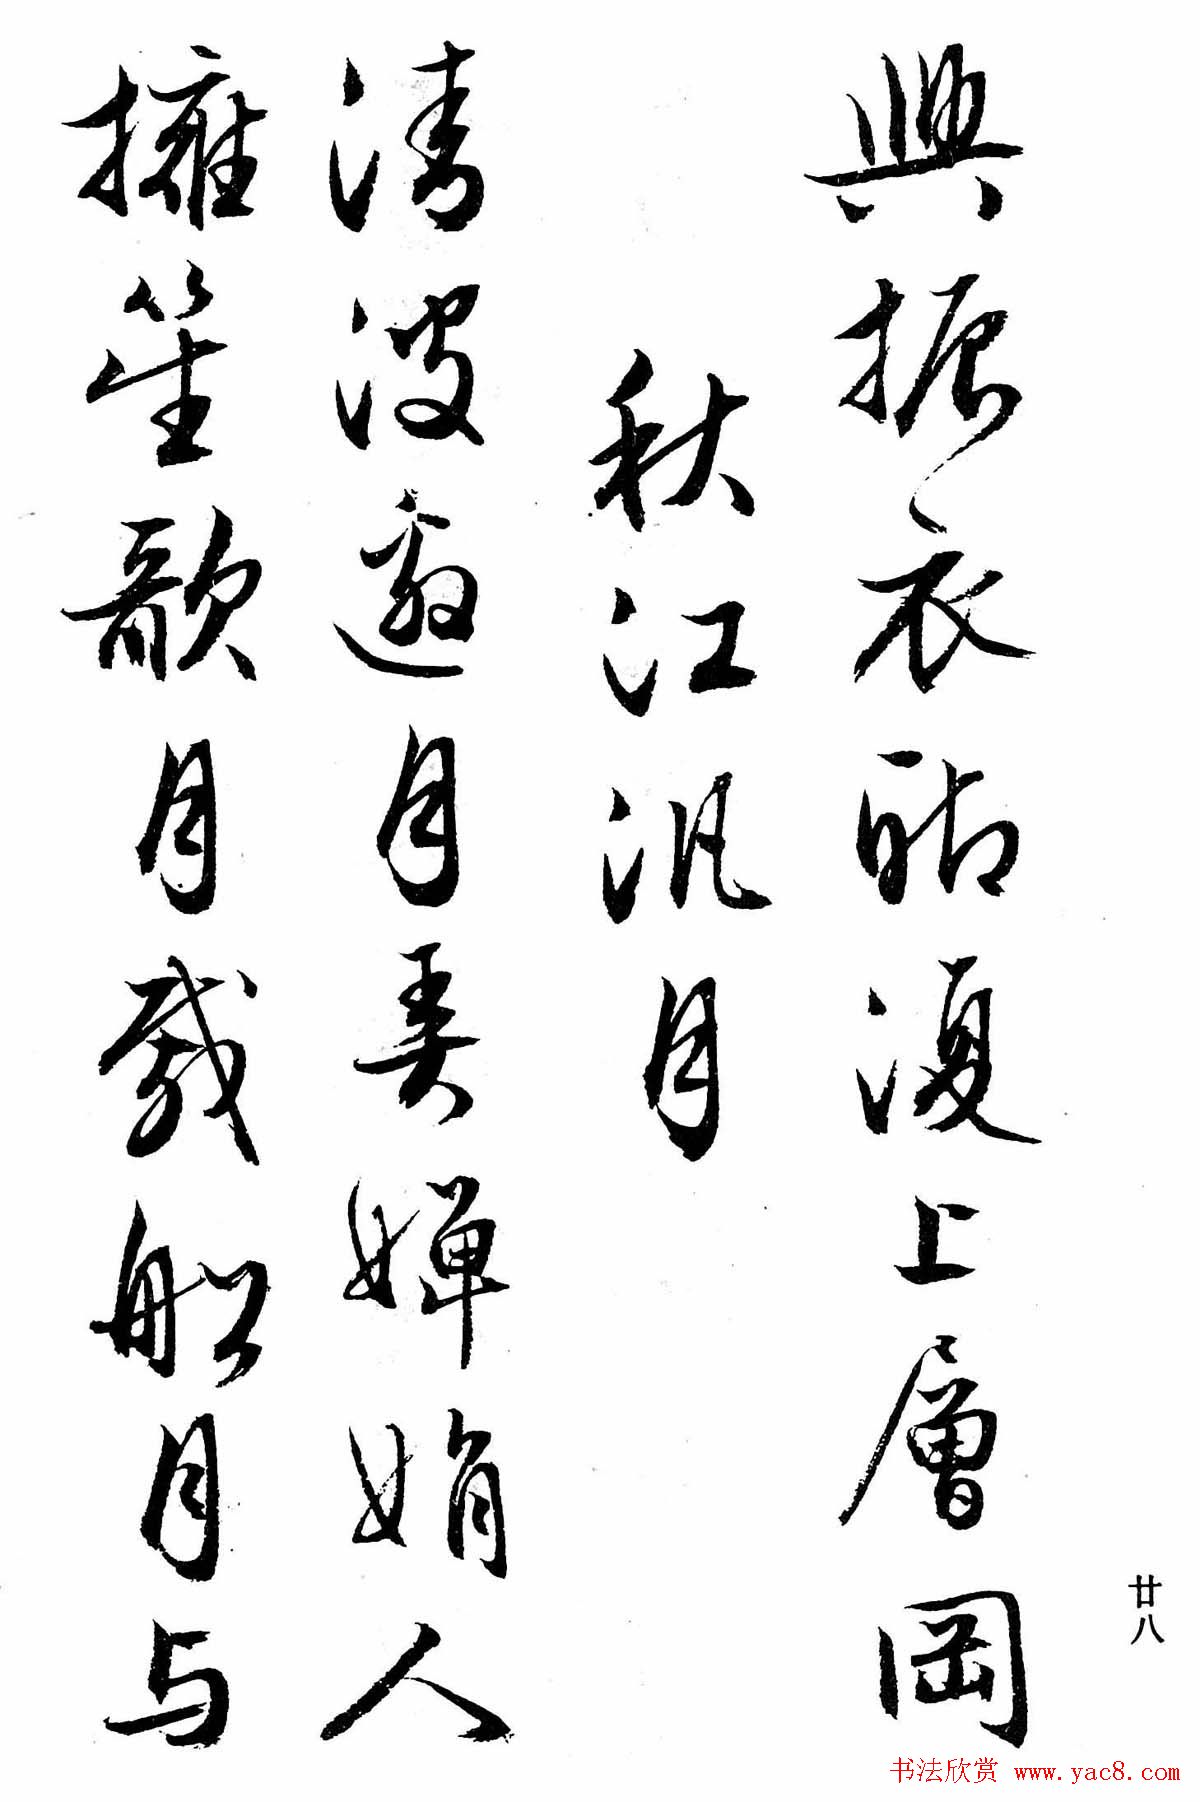 廿八
興振衣聊復上層岡
秋江汎月
清波邀月弄嬋娟人
擁笙歌月載船月与
书法欣赏 www.yac8.com